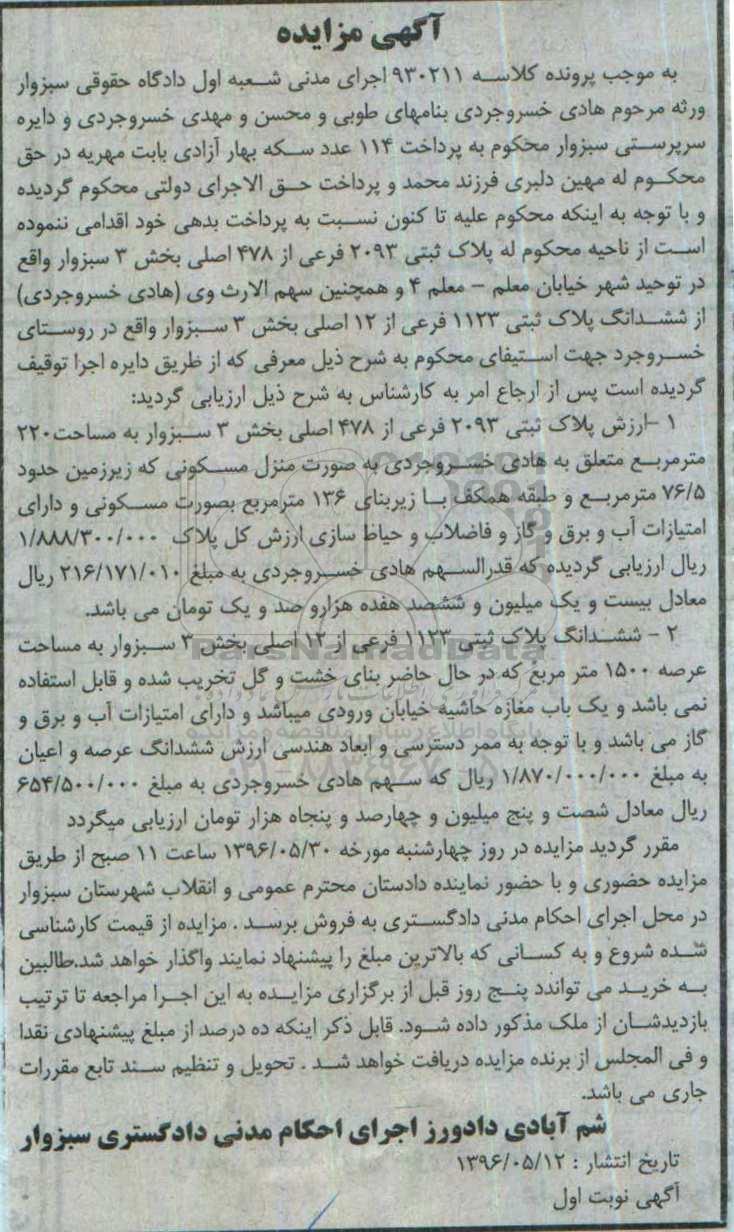 آگهی مزایده
به موجب پرونده کلاسه ۹۳۰۲۱۱ اجرای مدنی شعبه اول دادگاه حقوقی سبزوار
ورثه مرحوم هادی خسروجردی بنامهای طوبی و محسن و مهدی خسروجردی و دایره
سرپرستی سبزوار محکوم به پرداخت ۱۱۴ عدد سکه بهار آزادی بابت مهریه در حق
محکوم له مهین دلبری فرزند محمد و پرداخت حق الاجرای دولتی محکوم گردیده
و با توجه به اینکه محکوم علیه تا کنون نسبت به پرداخت بدهی خود اقدامی ننموده
است از ناحیه محکوم له پلاک ثبتی ۲۰۹۳ فرعی از ۴۷۸ اصلی بخش ۳ سبزوار واقع
در توحید شهر خیابان معلم – معلم ۴ و همچنین سهم الارث وی (هادی خسروجردی)
از ششدانگ پلاک ثبتی ۱۱۲۳ فرعی از ۱۲ اصلی بخش ۳ سبزوار واقع در روستای
خسروجرد جهت استیفای محکوم به شرح ذیل معرفی که از طریق دایره اجرا توقیف
گردیده است پس از ارجاع امر به کارشناس به شرح ذیل ارزیابی گردید:
۱ –ارزش پلاک ثبتی ۲۰۹۳ فرعی از ۴۷۸ اصلی بخش ۳ سبزوار به مساحت۲۲۰
مترمربع متعلق به هادی خسروجردی به صورت منزل مسکونی که زیرزمین حدود
۷۶/۵ مترمربع و طبقه همکف با زیربنای ۱۳۶ مترمربع بصورت مسکونی و دارای
امتیازات آب و برق و گاز و فاضلاب و حیاط سازی ارزش کل پلاک ۱/۸۸۸/۳۰۰/۰۰۰
ریال ارزیابی گردیده که قدرالسهم هادی خسروجردی به مبلغ ۲۱۶/۱۷۱/۰۱۰ ریال
معادل بیست و یک میلیون و ششصد هفده هزارو صد و یک تومان می باشد.
۲ – ششدانگ پلاک ثبتی ۱۱۲۳ فرعی از ۱۲ اصلی بخش ۳ سبزوار به مساحت
عرصه ۱۵۰۰ متر مربع که در حال حاضر بنای خشت و گل تخریب شده و قابل استفاده
نمی باشد و یک باب مغازه حاشیه خیابان ورودی میباشد و دارای امتیازات آب و برق و
گاز می باشد و با توجه به ممر دسترسی و ابعاد هندسی ارزش ششدانگ عرصه و اعیان
به مبلغ ۱/۸۷۰/۰۰۰/۰۰۰ ریال که سهم هادی خسروجردی به مبلغ ۶۵۴/۵۰۰/۰۰۰
ریال معادل شصت و پنج میلیون و چهارصد و پنجاه هزار تومان ارزیابی میگردد
مقرر گردید مزایده در روز چهارشنبه مورخه ۱۳۹۶/۰۵/۳۰ ساعت ۱۱ صبح از طریق
مزایده حضوری و با حضور نماینده دادستان محترم عمومی و انقلاب شهرستان سبزوار
در محل اجرای احکام مدنی دادگستری به فروش برسد . مزایده از قیمت کارشناسی
شده شروع و به کسانی که بالاترین مبلغ را پیشنهاد نمایند واگذار خواهد شد.طالبین
به خرید می تواندد پنج روز قبل از برگزاری مزایده به این اجرا مراجعه تا ترتیب
بازدیدشان از ملک مذکور داده شود. قابل ذکر اینکه ده درصد از مبلغ پیشنهادی نقدا
و فی المجلس از برنده مزایده دریافت خواهد شد . تحویل و تنظیم سند تابع مقررات
جاری می باشد.
شم آبادی دادورز اجرای احکام مدنی دادگستری سبزوار
تاریخ انتشار : ۱۳۹۶/۰۵/۱۲
آگهی نوبت اول
ParsNamadData